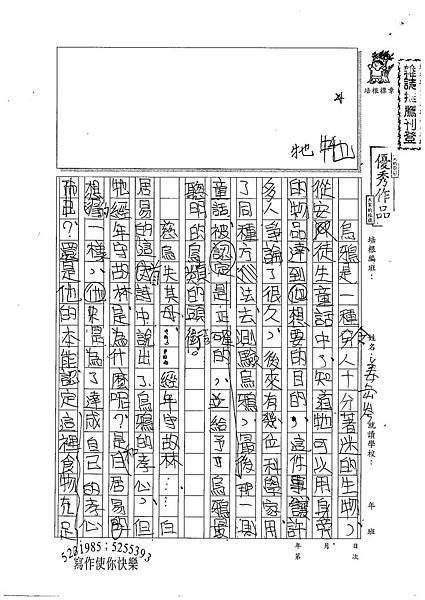 雜誌推薦刊登
培根標章
優秀作品
培根編班：
姓名：
就讀學校：
年 班
年 月 日
第 次
牠 牠
烏鴉是一種令人十分著迷的生物，
從安徒生童話中，知道牠可以用身旁
的物品達到他想要的目的，這件事讓許
多人爭論了很久，後來有幾位科學家用
了同種方法去測驗烏鴉，最後那一則
童話被認定是正確的，並給予烏鴉最
聰明的鳥類的頭銜。
慈烏失其母…經年守故林……白
居易的這首詩中說出了烏鴉的孝心，但
牠經年守故林是為什麼呢？是和白居易所
想的一樣，他只是為了達成自己的孝心
而已？還是他的本能認定這裡食物充足
5231985；5255393
寫作使你快樂